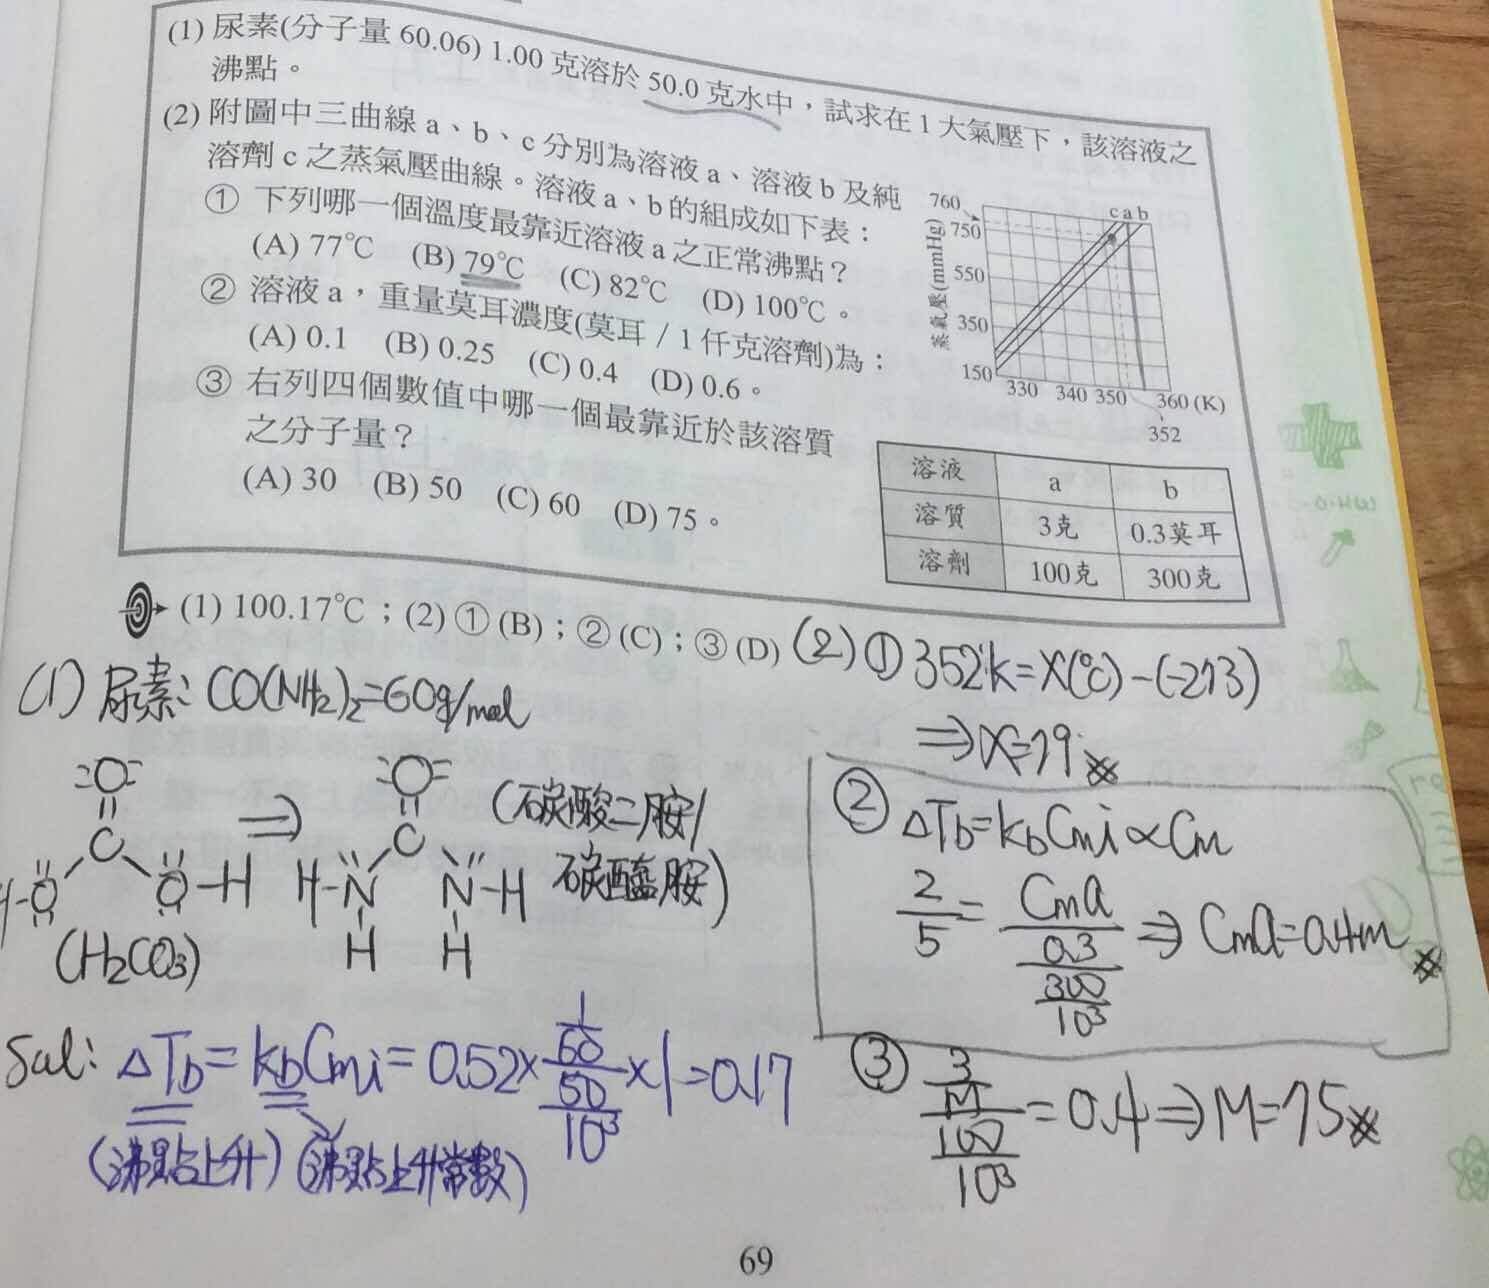 (1) 尿素(分子量 60.06) 1.00 克溶於 50.0 克水中，試求在 1 大氣壓下，該溶液之
沸點。
(2) 附圖中三曲線 a、b、c 分別為溶液 a、溶液 b 及純
溶劑 c 之蒸氣壓曲線。溶液 a、b 的組成如下表：
① 下列哪一個溫度最靠近溶液 a 之正常沸點？
(A) 77℃ (B) 79℃ (C) 82℃ (D) 100℃。
② 溶液 a，重量莫耳濃度(莫耳／1 仟克溶劑)為：
(A) 0.1 (B) 0.25 (C) 0.4 (D) 0.6。
③ 右列四個數值中哪一個最靠近於該溶質
之分子量？
(A) 30 (B) 50 (C) 60 (D) 75。
c a b
760
750
550
350
150
蒸氣壓(mmHg)
330 340 350 360 (K)
352
溶液 a b
溶質 3克 0.3莫耳
溶劑 100克 300克
(1) 100.17℃；(2) ① (B)；② (C)；③ (D)
(1) 尿素: CO(NH₂)₂=60g/mol
O ⇒ O
C C
H-O O-H H-N N-H
H H
(H₂CO₃)
(碳酸二胺/
碳醯胺)
Sol: ΔTb=kbCmi=0.52×(1/60)/(50/10³)×1=0.17
(沸點上升) (沸點上升常數)
(2) ① 352k=X(℃)-(-273)
⇒X=79
② ΔTb=kbCmi∝Cm
2/5=Cma/(0.3/(300/10³))⇒Cma=0.4m
③ (3/M)/(100/10³)=0.4⇒M=75
69